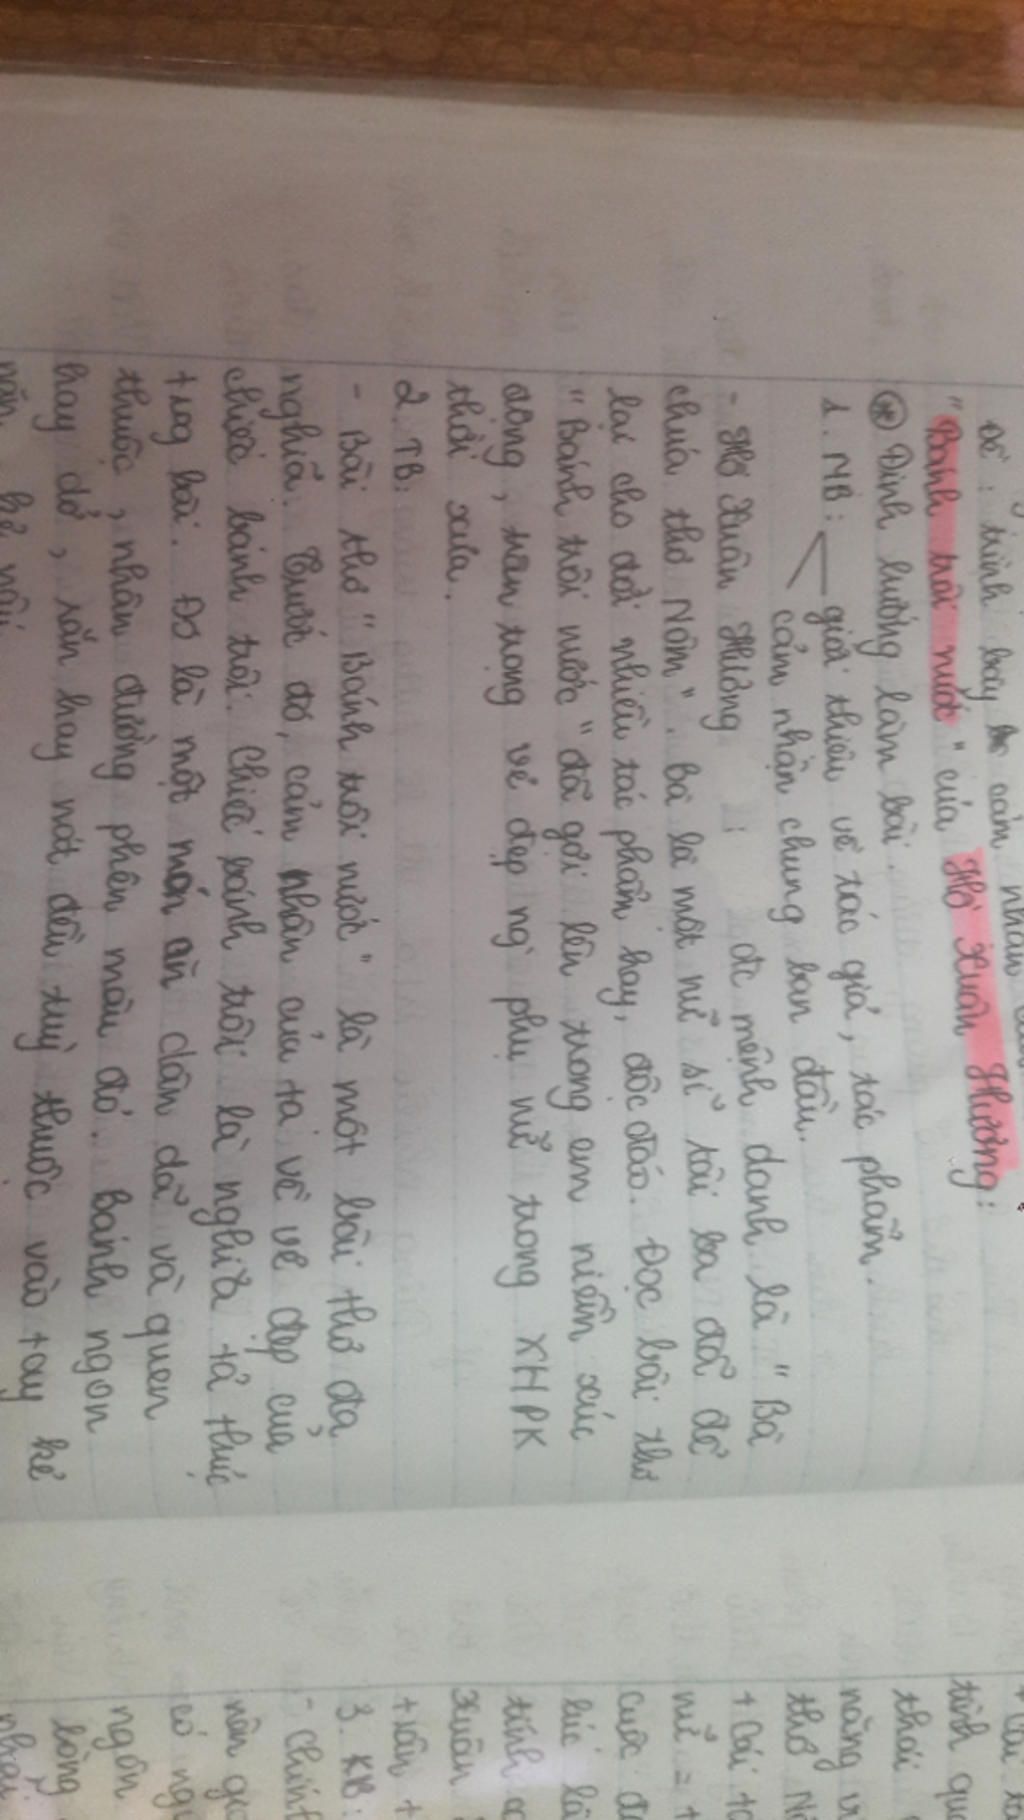 Đề: trình bày cảm nhận
"Bánh trôi nước" của Hồ Xuân Hương:
* Định hướng làm bài.
1. MB: giới thiệu về tác giả, tác phẩm.
cảm nhận chung ban đầu.
- Hồ Xuân Hương đc mệnh danh là "Bà
chúa thơ Nôm". Bà là một nữ sĩ tài ba đã để
lại cho đời nhiều tác phẩm hay, độc đáo. Đọc bài thơ
"Bánh trôi nước" đã gợi lên trong em niềm xúc
động, trân trọng vẻ đẹp ng` phụ nữ trong XHPK
thời xưa.
2. TB:
- Bài thơ "Bánh trôi nước" là một bài thơ đa
nghĩa. Trước đó, cảm nhận của ta về vẻ đẹp của
chiếc bánh trôi. Chiếc bánh trôi là nghĩa tả thực
trog bài. Đó là một món ăn dân dã và quen
thuộc, nhân đường phên màu đỏ. Bánh ngon
hay dở, rắn hay nát đều tuỳ thuộc vào tay kẻ
nặn
tình
thái
năng
thơ
+ Cái
nữ =
cuộc
lúc
tính
Xuân
+ trân
3. KB:
- Chính
nên
có
ngôn
lòng
phải